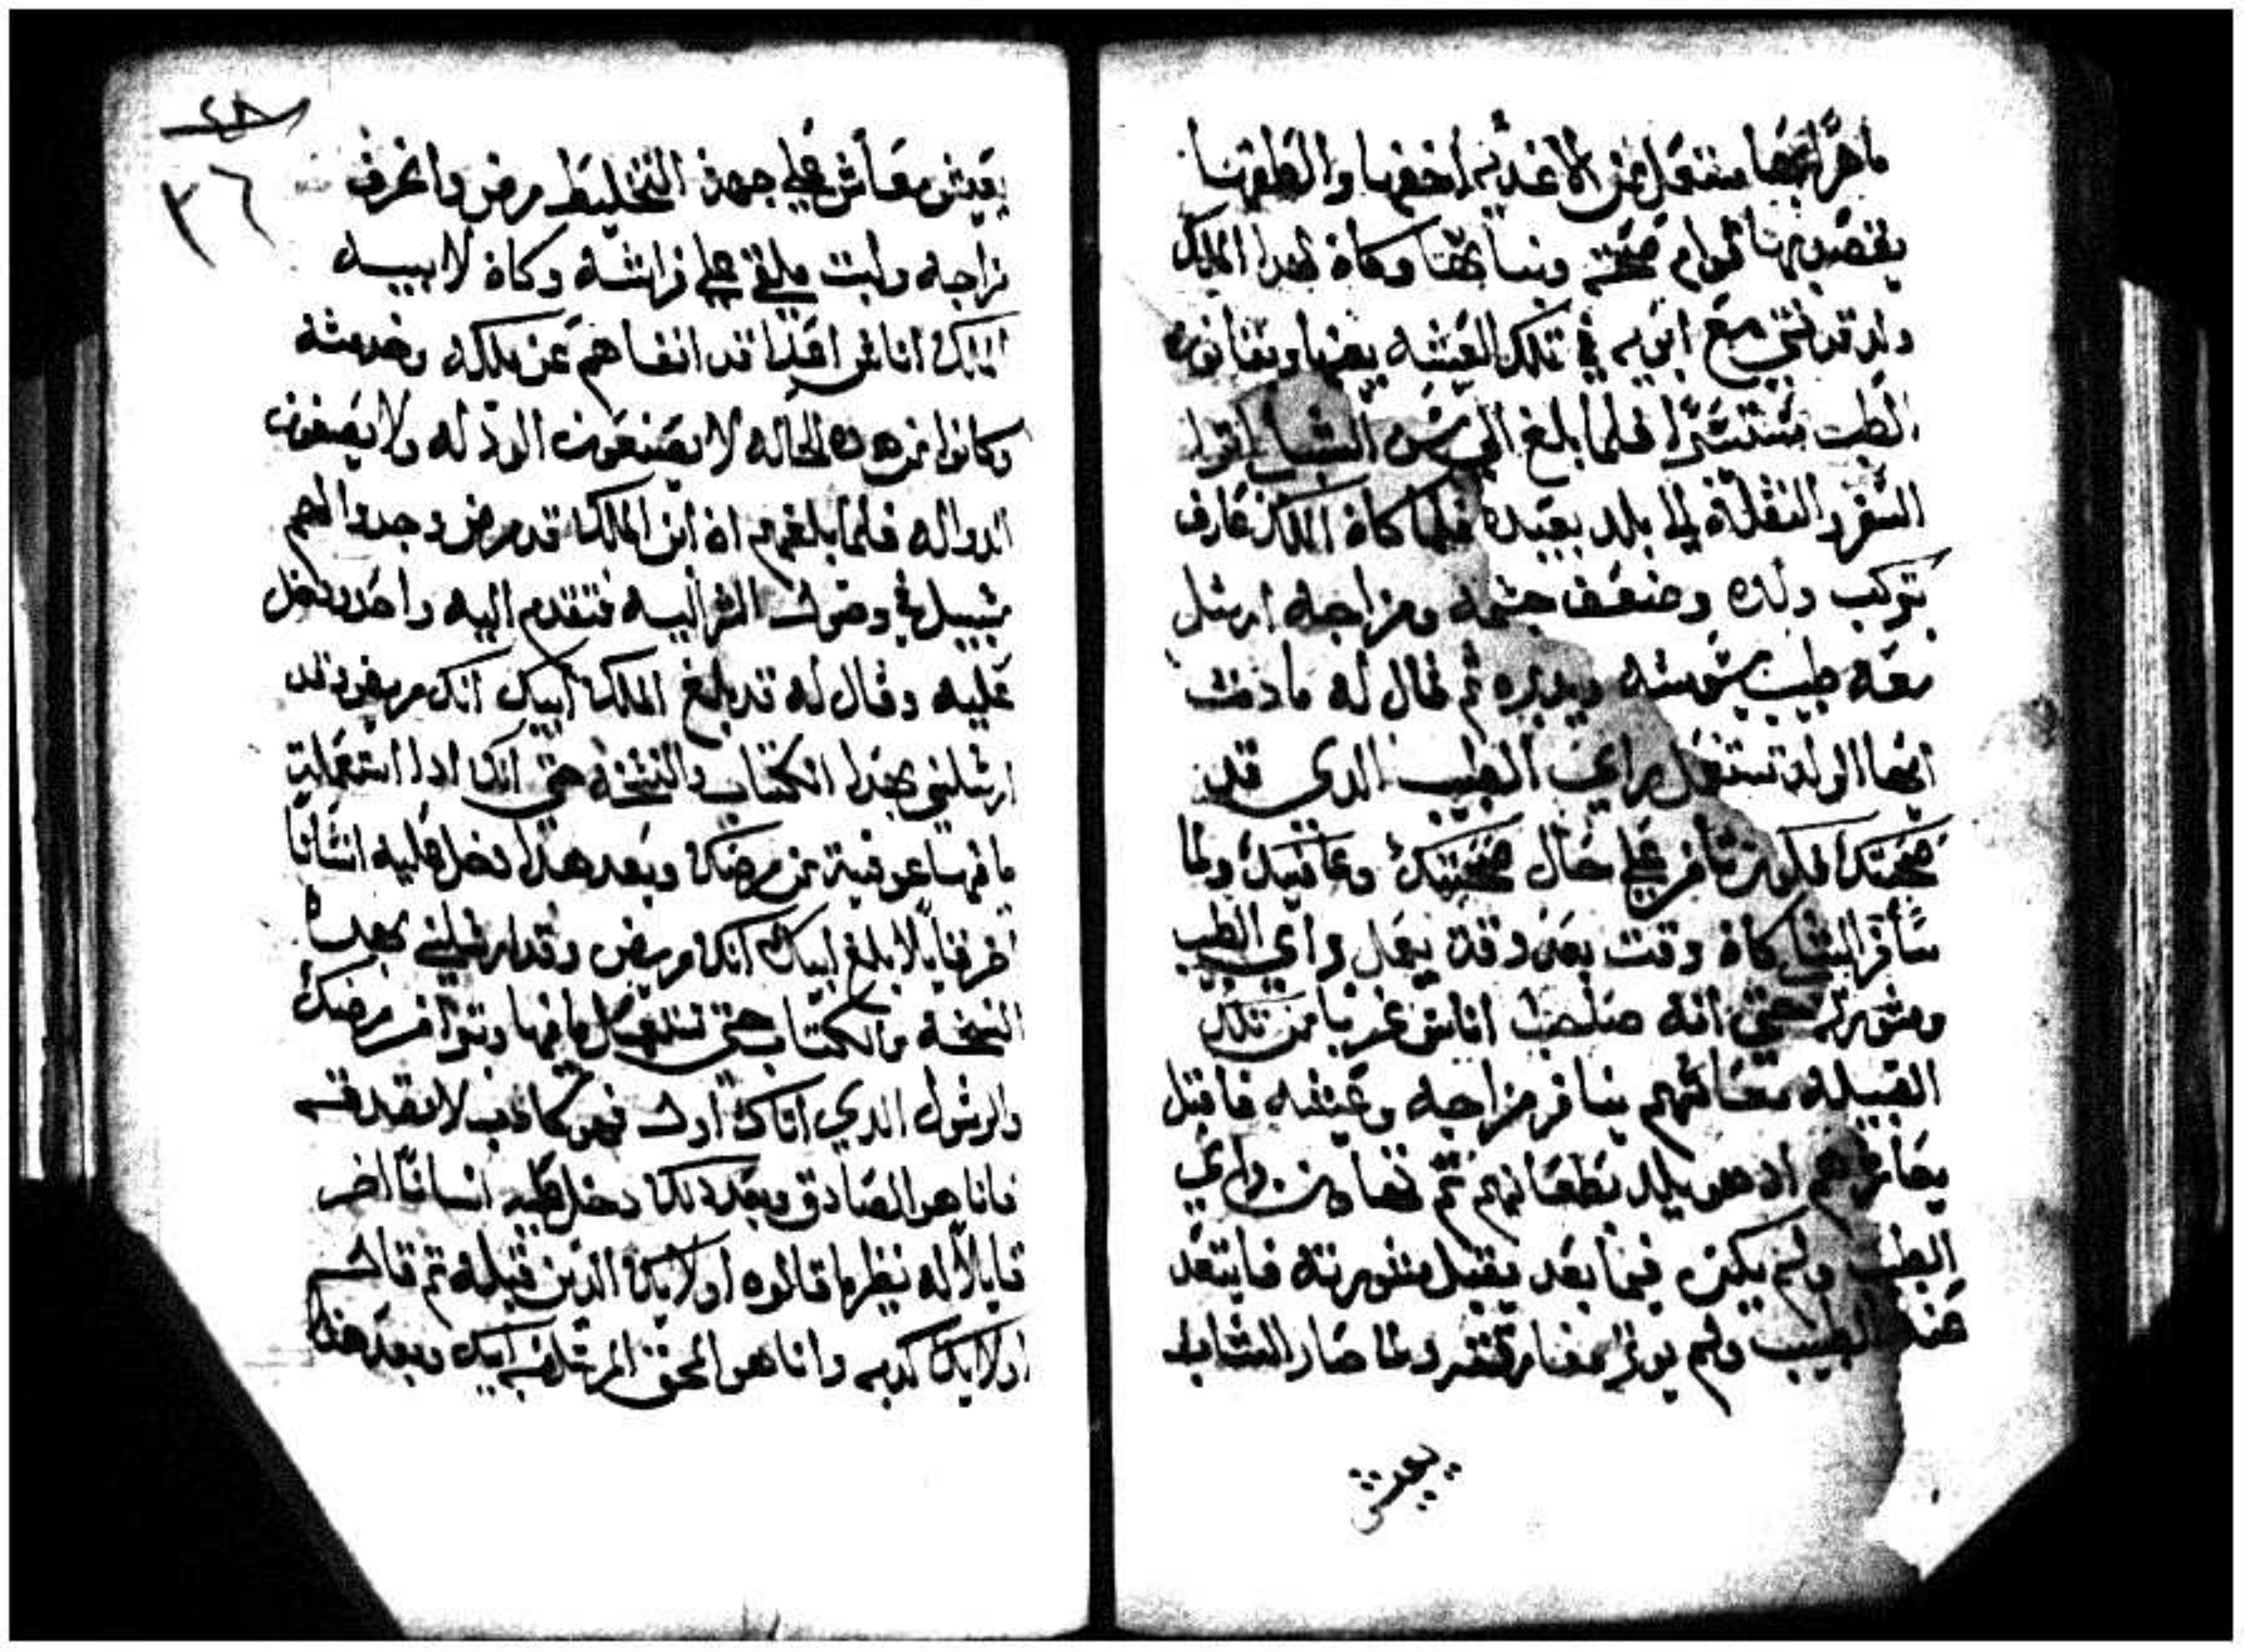 ماهرًا بها منتقل من الاغذيه اخفها والطفها
يقصد بها قوام صحته وثباتها وكان لهدا الملك
ولد قد نشي مع ابويه في تلك العيشه
الطب مستتيرًا فلما بلغ الي سن الشباب
السفر والنقلان الي بلد بعيده فلما كان الملك عارف
بتركيب ولده وضعف جسمه ومزاجه ارسل
معه طبيب يسوسه ويدبره ثم قال له مادمت
ايها الولد تستعمل براي الطبيب الدي قد
صحبتك تكون تسافر علي حال صحتك وعافيتك ولما
سافر الشاب كان وقت بعد وقت يعمل براي الطبيب
ومشورته حتي انه صاحب اناس غربا من تلك
القبيله معاشهم ينافر مزاجه وعيشه فاقبل
يعاشرهم ادهو يلد بطعامهم ثم تهاون براي
الطبيب ولم يكن فيما بعد يقبل مشورته فابتعد
عنه الطبيب ولم يوثر مفارقته ولما صار الشاب
يعيش
يعيش معاش علي جهة التخليط مرض وانحرف
مزاجه وابت ملقي علي فراشه وكان لابيه
الملك اناس اعدا قد انفاهم عن ملكه وخدمته
وكانوا من هده الحاله لا يصنعون الود له ولا يصفون
الدوا له فلما بلغهم ان ابن الملك قد مرض وجدوا لهم
سبيل في وصول الشر اليه فتقدم اليه واحد ودخل
عليه وقال له قد بلغ الملك ابيك انك مريض وقد
ارسلني بهدا الكتاب والنسخه حتي انك ادا استعملت
ما فيها عوفيت من مرضك وبعد هدا دخل عليه انسانًا
اخر قايلًا بلغ ابيك انك مريض وقد ارسلني بهده
النسخه والكتاب حتي تستعمل ما فيها وتبرا من مرضك
والرسول الدي اتاك اولًا فهو كادب لا تصدقه
فانا هو الصادق وبعد دلك دخل عليه انسانًا اخر
قايلًا له نظير ما قالوه اولايك الدين قبله ثم قال له
اولايك كدبه وانا هو المحق المرسل من ابيك وبعد هدا